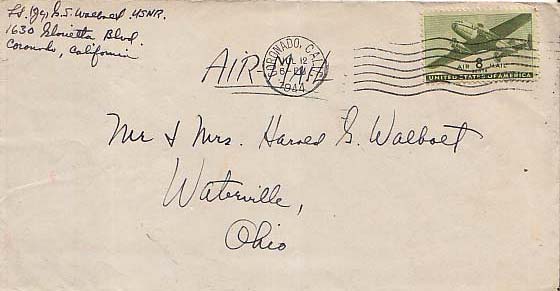 Lt. (jg) G. S. Walbolt, USNR.
1630 Glorietta Blvd.
Coronado, California
AIR MAIL
CORONADO, CAL.
JUL 12
6-PM
1944
8
AIR MAIL
UNITED STATES OF AMERICA
Mr & Mrs. Harold G. Walbolt
Waterville,
Ohio